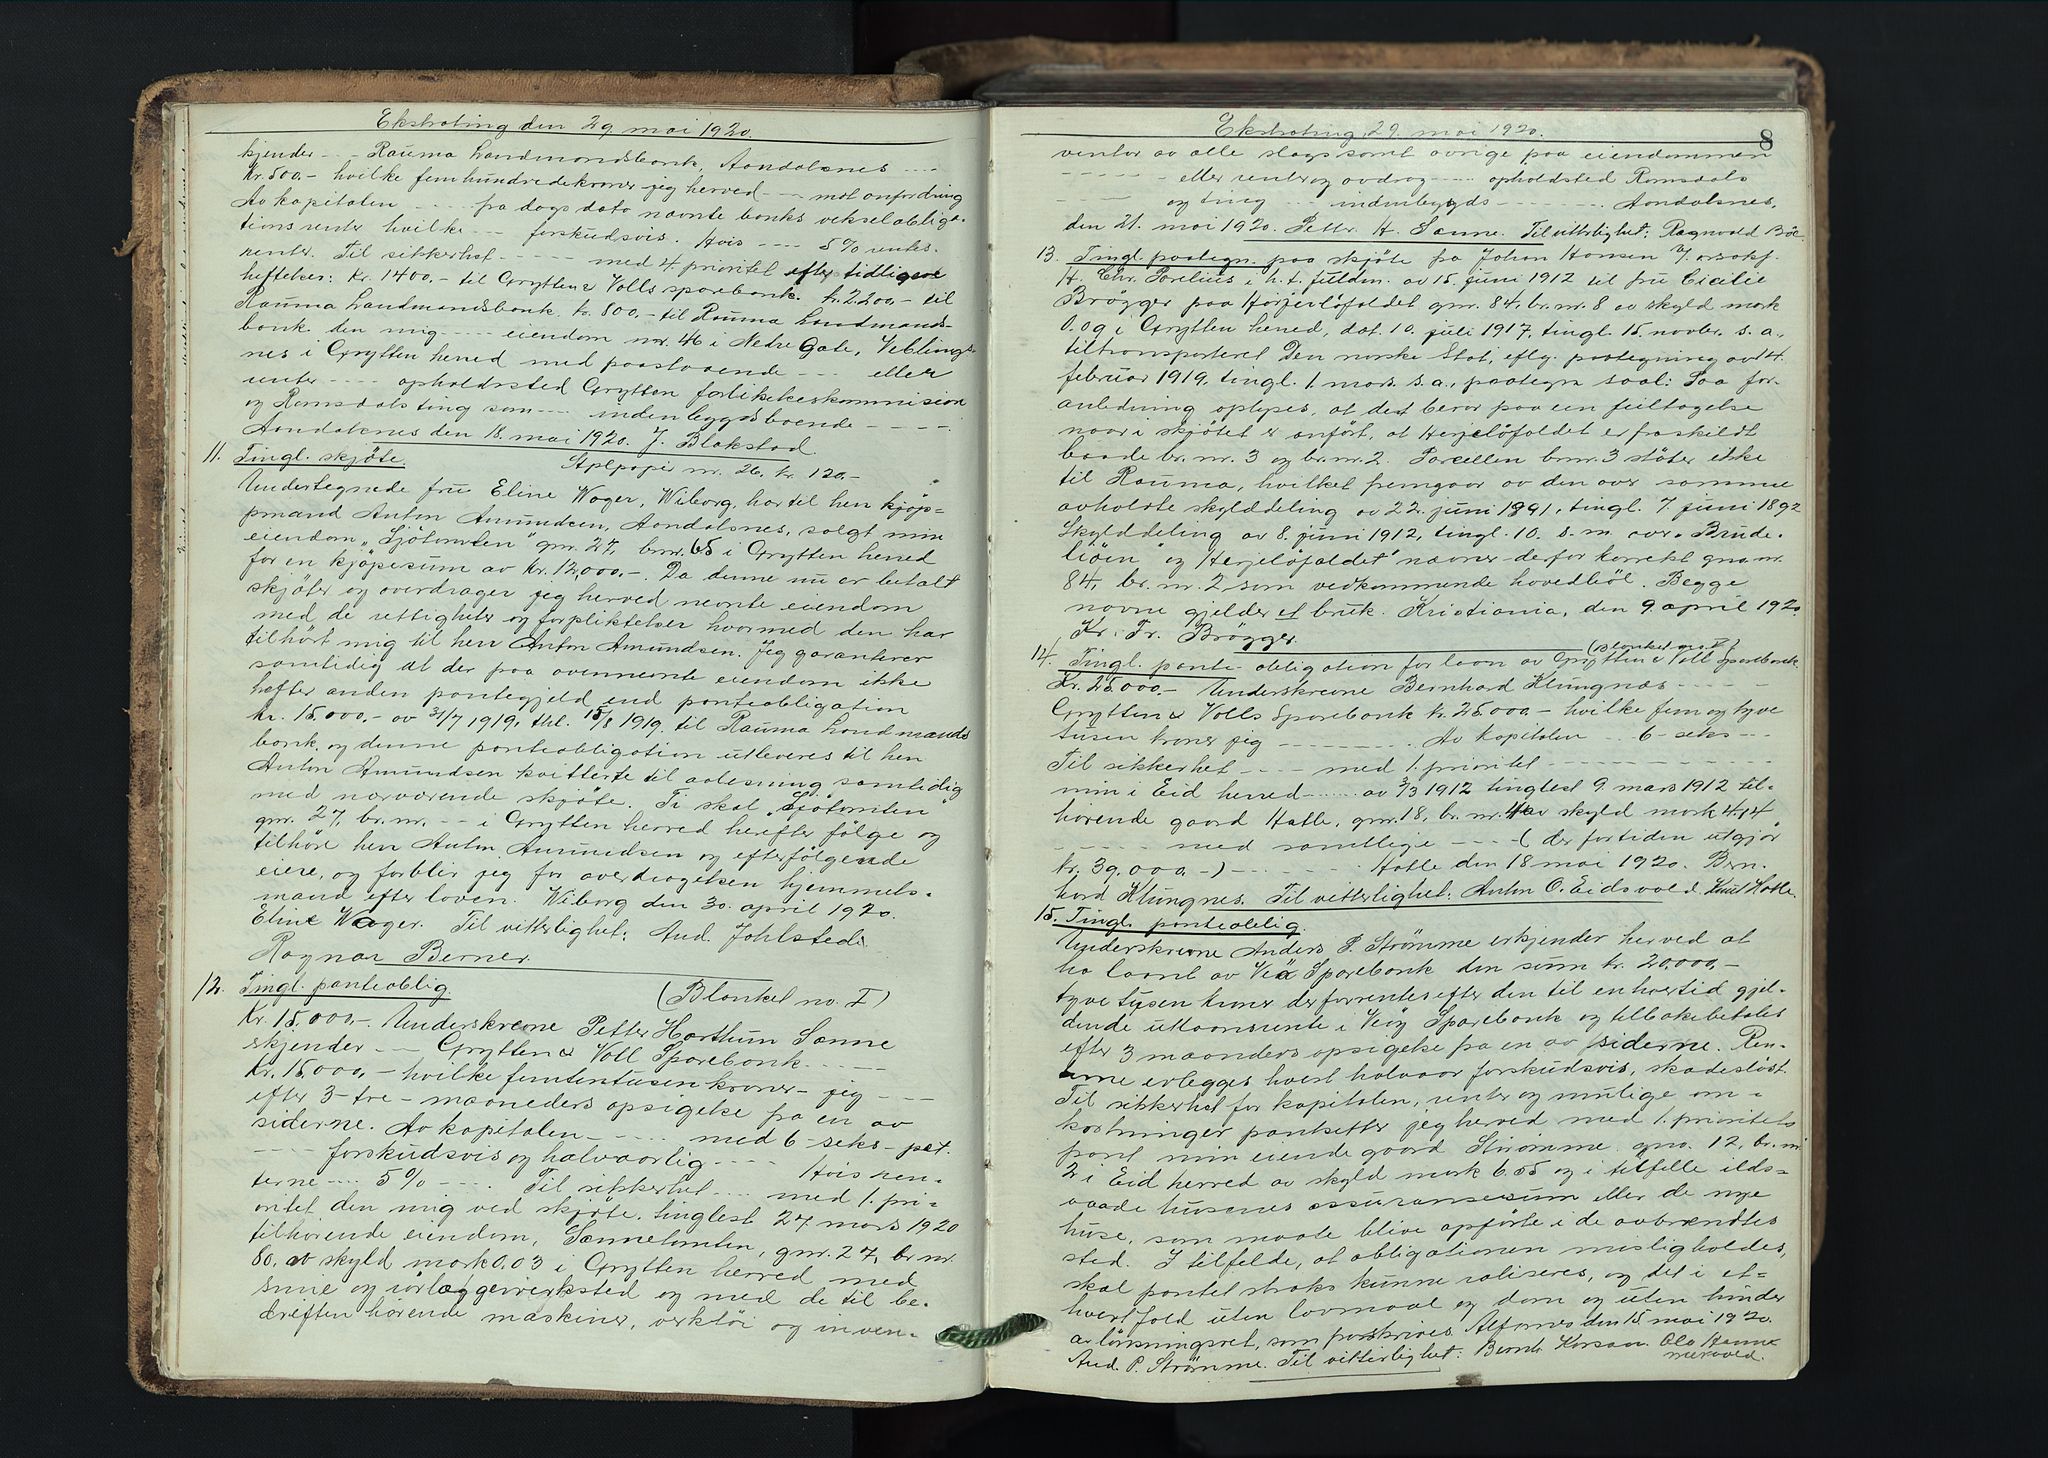 Ekstrating den 29. mai 1920.
kjender --- Rauma Landmandsbank, Aandalsnes ---
Kr. 500.- hvilke femhundredekroner jeg herved --- mot anfordring
Av kapitalen ---- fra dags dato nævnte banks vekselobliga-
tionsrenter hvilke --- forskudsvis. Hvis ---- 5% rentes-
renter. Til sikkerhet ----- med 4. prioritet efter tidligere
heftelser: Kr. 1400.- til Grytten & Volls sparebank. kr. 2200.- til
Rauma Landmandsbank kr. 800.- til Rauma Landmands-
bank den mig ---- eiendom nr. 46 i Nedre Gate, Veblungs-
nes i Grytten herred med paastaaende --- eller
renter ---- opholdssted Grytten forlikelseskommission
og Romsdals ting som ---- indenbygdsboende -----
Aandalsnes den 18. mai 1920. J. Blakstad.
11. Tingl. skjøte. Stplpapir nr. 26. kr. 120.-
Undertegnede fru Eline Wager, Wiborg, har til herr kjøp-
mand Anton Amundsen, Aandalsnes, solgt min
eiendom "Sjøtomten" gnr. 27, brnr. 65 i Grytten herred
for en kjøpesum av Kr. 12,000.-. Da denne nu er betalt
skjøter og overdrager jeg herved nævnte eiendom
med de rettigheter og forpliktelser hvormed den har
tilhørt mig til herr Anton Amundsen. Jeg garanterer
samtidig at der paa ovennævnte eiendom ikke
hefter anden pantegjeld end panteobligation
kr. 15.000.- av 31/7 1919, thl. 15/8 1919 til Rauma Landmands
bank og denne panteobligation utleveres til herr
Anton Amundsen kvitterte til avlesning samtidig
med nærværende skjøte. Ti skal "Sjøtomten"
gnr. 27, br. nr. -- i Grytten herred herefter følge og
tilhøre herr Anton Amundsen og efterfølgende
eiere, og forblir jeg for overdragelsen hjemmels-
mand efter loven. Wiborg den 30. april 1920.
Eline Wager. Til vitterlighet: And. Johlstede.
Ragnar Berner.
12. Tingl. panteoblig. (Blanket no. I)
Kr. 15.000.-. Underskrevne Petter Harthum Sanne
erkjender -- Grytten & Voll Sparebank -----
Kr. 15.000.- hvilke femtentusen kroner - jeg ----
efter 3 - tre - maaneders opsigelse fra en av
siderne. Av kapitalen ----- med 6 - seks - pct.
---- forskudsvis og halvaarlig ---- Hvis ren-
terne --- 5% ---- Til sikkerhet --- med 1. pri-
oritet den mig ved skjøte, tinglest 27 mars 1920
tilhørende eiendom, Sannetomten, gnr. 27, br. nr.
80. av skyld mark 0,03 i Grytten herred med
smie og verksted og med de til be-
driften hørende maskiner, verktøi og inven-
Ekstrating 29. mai 1920. 8
ventar av alle slags samt øvrige paa eiendommen
----- eller renter og avdrag ---- opholdsted Romsdals
---- og ting ---- indenbygds ------ Aandalsnes,
den 21. mai 1920. Petter H. Sanne. Til vitterlighet: Ragnvald Bøe.
13. Tingl. paategn. paa skjøte fra Johan Hansen v/ o.r.sakf.
H. Chr. Borelius i h. t. fuldm. av 15. juni 1912 til fru Cicilie
Brøgger paa Herjeløfaldet gnr. 84, br. nr. 8 av skyld mark
0.09 i Grytten herred, dat. 10. juli 1917, tingl. 15 novbr. s. a.
tiltransporteret Den norske Stat, eflg. paategning av 14.
februar 1919, tingl. 1. mars s. a., paategn saal: Paa for-
anledning oplyses, at det beror paa en feiltagelse
naar i skjøtet er anført, at Herjeløfaldet er fraskildt
baade br. nr. 3 og br. nr. 2. Parcellen brnr. 3 støter ikke
til Rauma, hvilket fremgaar av den over samme
avholdte skylddeling av 22. juni 1891, tingl. 7. juni 1892
Skylddeling av 8. juni 1912, tingl. 10. s. m. over "Brude-
liøen" og Herjeløfaldet" nævner derfor korrekt gno. nr.
84, br. nr. 2, som vedkommende hovedbøl. Begge
navne gjelder et bruk. Kristiania, den 9. april 1920
Kr. Fr. Brøgger.
14. Tingl. pante-obligation for laan av Grytten & Voll Sparebank (Blanket no. I)
Kr. 25.000.- Underskrevne Bernhard Klungnæs -----
Grytten & Volls Sparebank kr. 25.000.- hvilke fem og tyve
tusen kroner jeg ------- Av kapitalen --- 6 - seks ---
Til sikkerhet ---- med 1. prioritet ---------
min i Eid herred ------ av 2/3 1912 tinglest 9. mars 1912 til-
hørende gaard Hatle, gnr. 18, br. nr. 4 av skyld mark 4.14
----- med samtlige ---- ( der for tiden utgjør
kr. 39,000.-) ------ Hatle den 18 mai 1920. Bern-
hard Klungnes. Til vitterlighet: Anton O. Eidsvold. Knut Hatle.
15. Tingl. panteoblig.
Underskrevne Anders P. Strømme erkjender herved at
ha laant av Veø Sparebank den sum kr. 20,000.-
tyve tusen kroner der forrentes efter den til enhver tid gjel-
dende utlaansrente i Veøy Sparebank og tilbakebetales
efter 3 maaneders opsigelse fra en av siderne. Ren-
terne erlegges hvert halvaar forskudsvis, skadesløst.
Til sikkerhet for kapitalen, renter og mulige om-
kostninger pantsetter jeg herved med 1. prioritets
pant min eiende gaard Strømme gno. 12, br. nr.
2 i Eid herred av skyld mark 6.55 og i tilfelle ilds-
vaade husenes assuransesum eller de nye
huse, som maate blive opførte i de avbrændtes
sted. I tilfelde, at obligationen misligholdes,
skal pantet straks kunne realiseres, og det i et-
hvert fald uten lovmaal og dom og uten hinder
av løsningsret, som fraskrives. Alfarnes den 15 mai 1920.
And. P. Strømme. Til vitterlighet: Bernh. Korsan. Ola Hanne